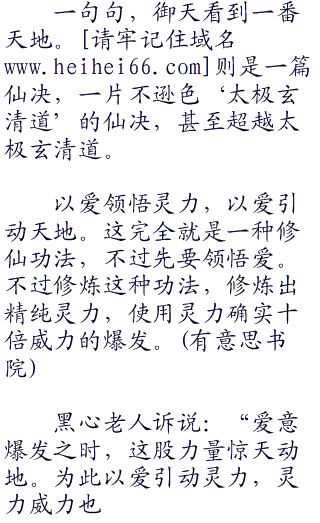 一句句，御天看到一番
天地。[请牢记住域名
www.heihei66.com]则是一篇
仙决，一片不逊色‘太极玄
清道’的仙决，甚至超越太
极玄清道。
以爱领悟灵力，以爱引
动天地。这完全就是一种修
仙功法，不过先要领悟爱。
不过修炼这种功法，修炼出
精纯灵力，使用灵力确实十
倍威力的爆发。(有意思书
院)
黑心老人诉说：“爱意
爆发之时，这股力量惊天动
地。为此以爱引动灵力，灵
力威力也